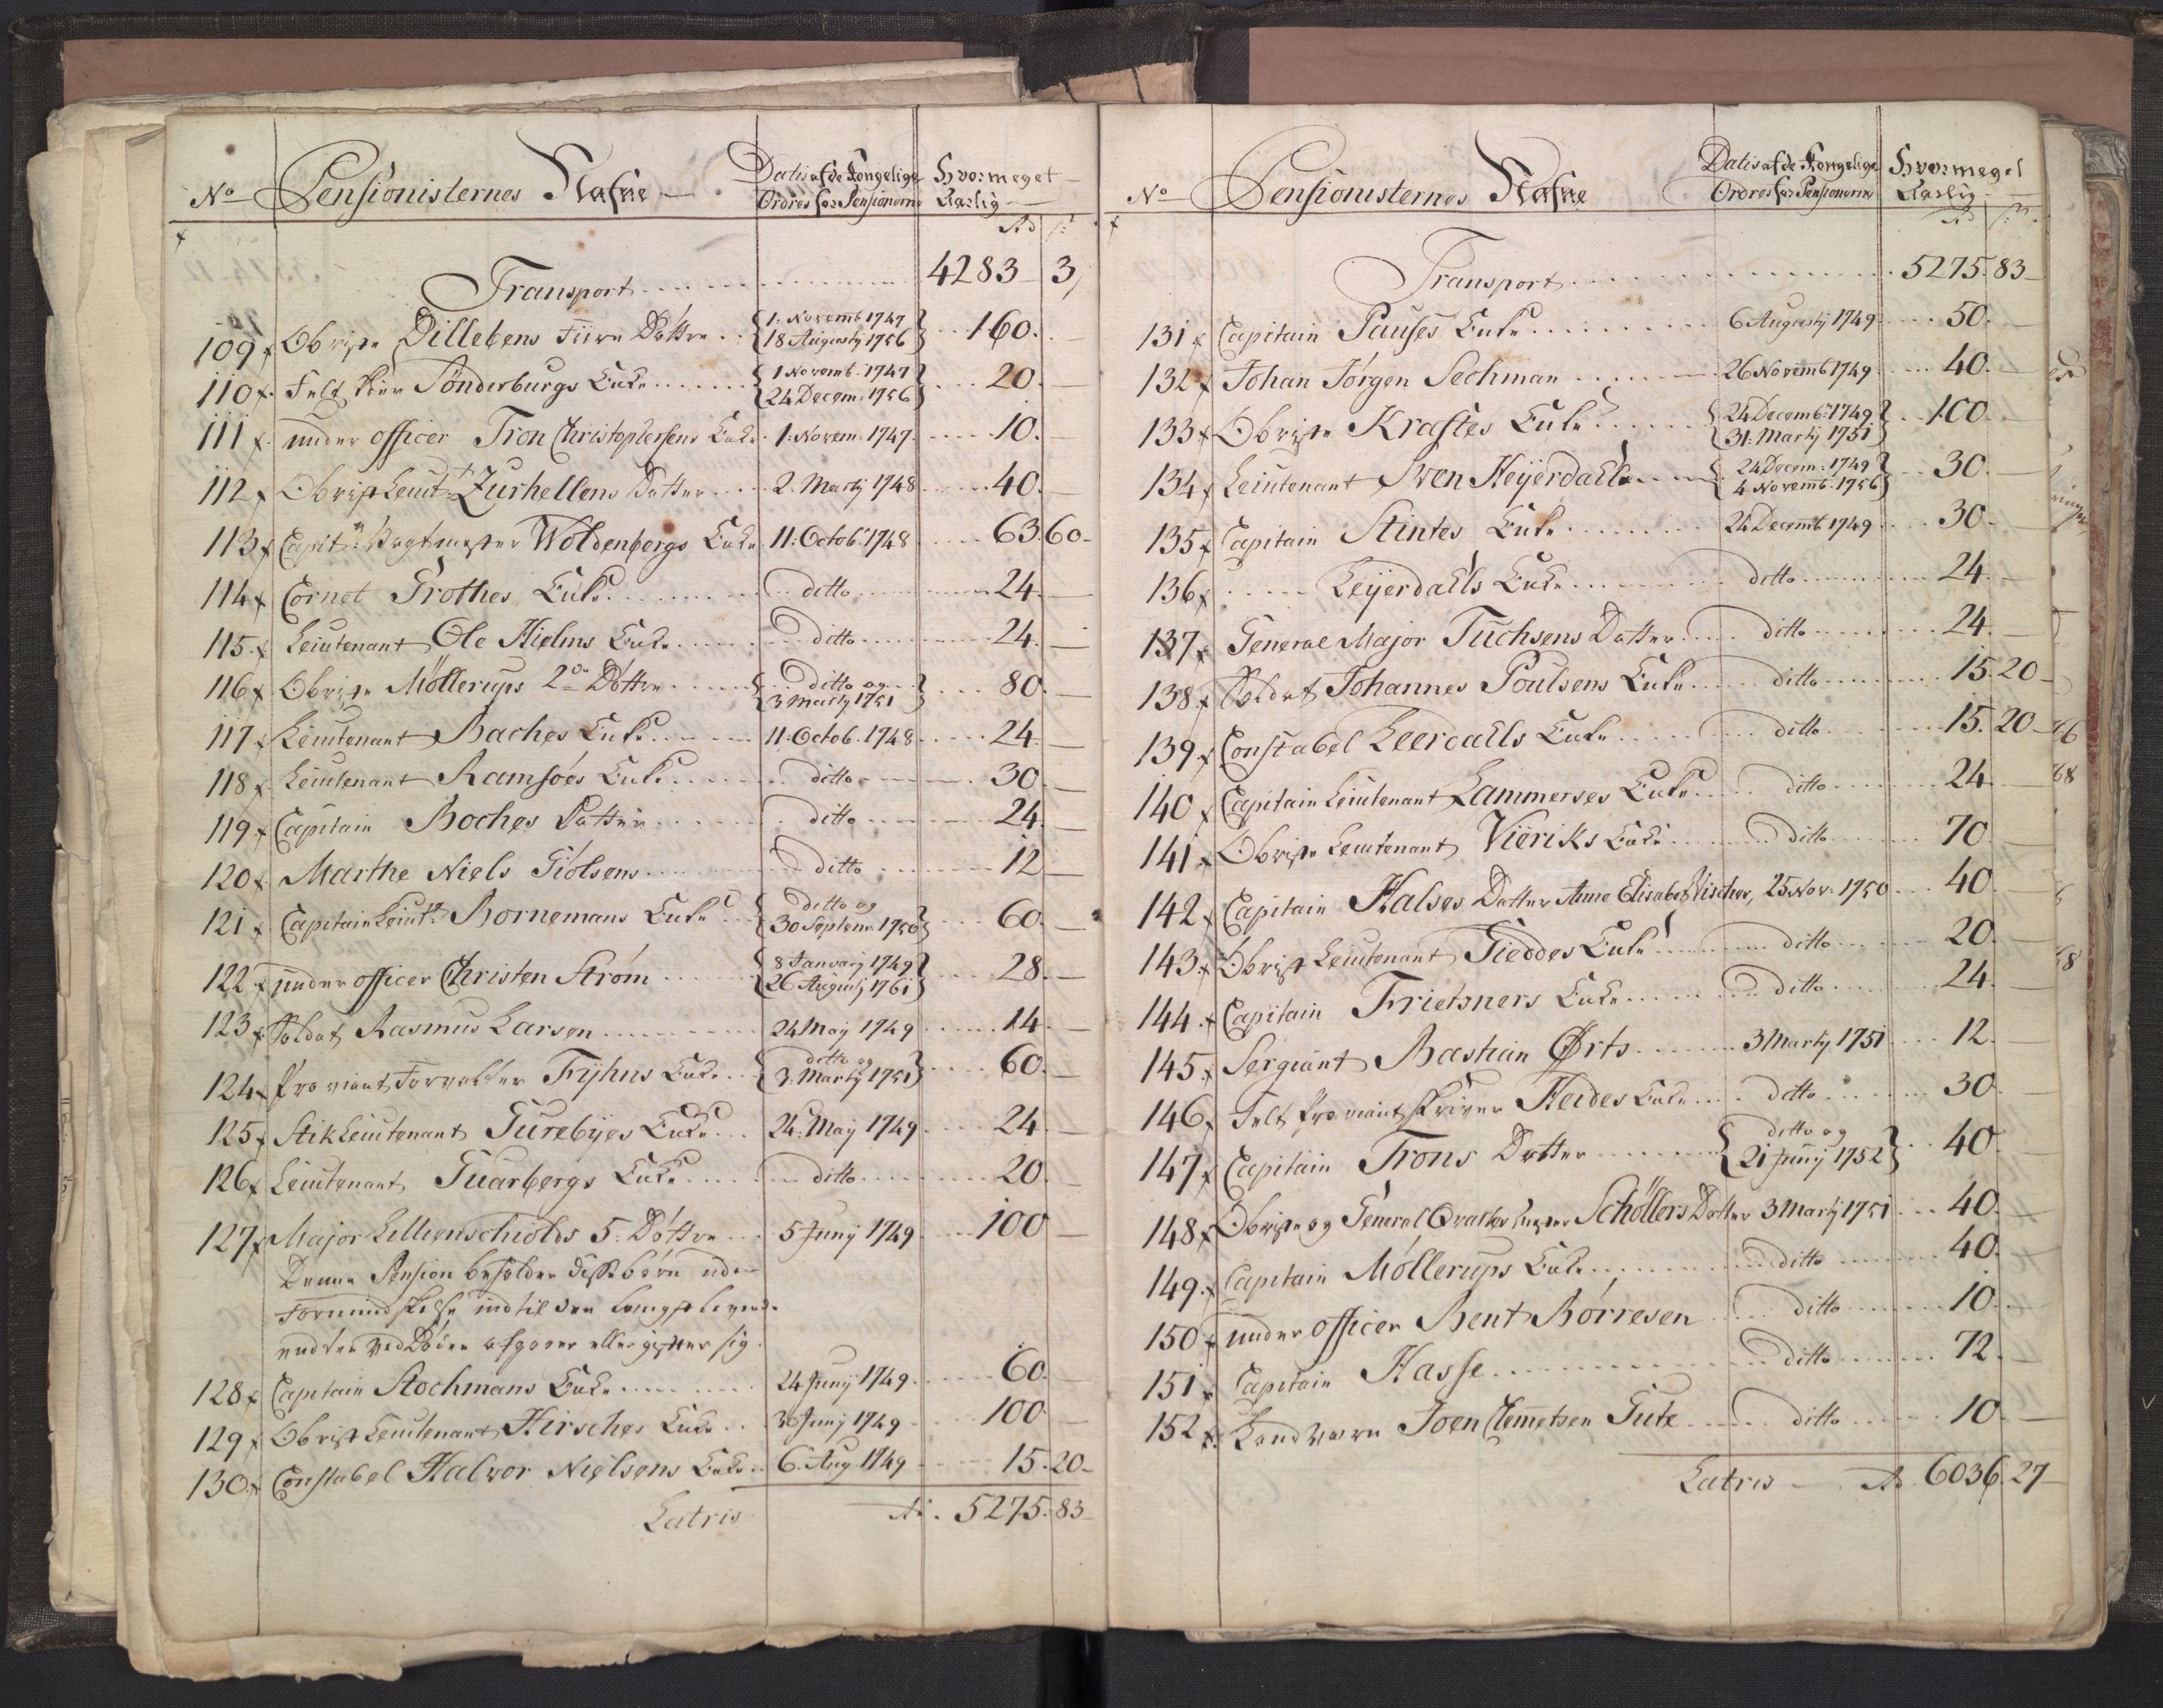 No Pensionisternes Nafne Datis af de Kongelige Hvormeget
Ordres for Pensionerne Aarlig
Rd ß
Transport 4283 3
109 Obriste Dillebens Fiire Døttre 1: Novemb 1747 160.
18 Augusty 1756
110 Felt skiær Sönderburgs Enke 1 Novemb. 1747 20.
24 Decem: 1756
111 under officer Tron Christophersens Enke 1: Novem: 1747. 10.
112 Obrist Leiut Zurhellens Datter 2. Martj 1748 40.
113 Capit: Vagtmester Woldenbergs Enke 11: Octob: 1748 63. 60
114 Cornet Grothes Enke ditto 24.
115 Leiutenant Ole Hielms Enke ditto 24.
116 Obriste Möllerups 2de Døttre ditto og 80.
3 Martj 1751
117 Leiutenant Baches Enke 11: Octob. 1748 24.
118 Leiutenant Ramsöes Enke ditto 30.
119 Capitain Boches Datter ditto 24.
120 Marthe Niels Giölsens ditto 12
121 Capitain Leiutt Bornemans Enke ditto og 60.
30 Septem 1750
122 under officer Christen Ström 8 Januarj 1749 28.
26 Augustj 1761
123 Soldat Rasmus Larsen 24 Maj 1749 14.
124 Proviant Forvalter Fyhns Enke ditto og 60.
3. Martj 1751
125 Stik Leiutenant Gurebyes Enke 24. Maj 1749 24.
126 Leiutenant Guarbergs Enke ditto 20.
127 Major Lillienschiolds 5. Døttre 5 Junij 1749 100
Denne Pension beholder disse børn uden
Formindskelse indtil den længstlevende
endten ved Døden afgaaer eller gifter sig.
128 Capitain Stochmans Enke 24 Junij 1749 60.
129 Obrist Leiutenant Hirsches Enke 30 Junij 1749 100
130 Constabel Halvor Nielsens Enke 6. Aug 1749 15. 20
Latris Rd. 5275. 83
No Pensionisternes Nafne Datis af de Kongelige Hvormeget
Ordres for Pensionerne Aarlig
Rd ß
Transport 5275. 83
131 Capitain Pauses Enke 6 Augustj 1749 50.
132 Johan Jörgen Sechman 26 Novemb 1749 40.
133 Obriste Kraftes Enke 24 Decemb: 1749 100
31: Martj 1751
134 Leiutenant Sven Heyerdahl 24 Decem: 1749 30
4 Novemb. 1756
135 Capitain Stintes Enke 24 Decemb 1749 30.
136 Leyerdahls Enke ditto 24.
137 General Major Tuchsens Datter ditto 24.
138 Soldat Johannes Poulsens Enke ditto 15. 20
139 Constabel Leerdahls Enke ditto 15. 20
140 Capitain Leiutenant Lammerses Enke ditto 24.
141 Obriste Leiutenant Vieriks Enke ditto 70
142 Capitain Halses Datter Anna Elisabet Vischer, 25 Nov: 1750 40.
143 Obrist Leiutenant Gieddes Enke ditto 20.
144 Capitain Frietsners Enke ditto 24.
145 Sergiant Bastian Ørts 3 Martj 1751 12.
146 Felt Proviant skriver Heides Enke ditto 30.
147 Capitain Trons Datter ditto og 40.
21 Junij 1752
148 Obriste og General Qvarteermester Schöllers Datter 3 Martj 1751 40.
149 Capitain Möllerups Enke ditto 40.
150 under officer Bent Börresen ditto 10.
151 Capitain Hasse ditto 72.
152 Landværn Joen Clemetsen Gute ditto 10.
Latris Rd 6036. 27